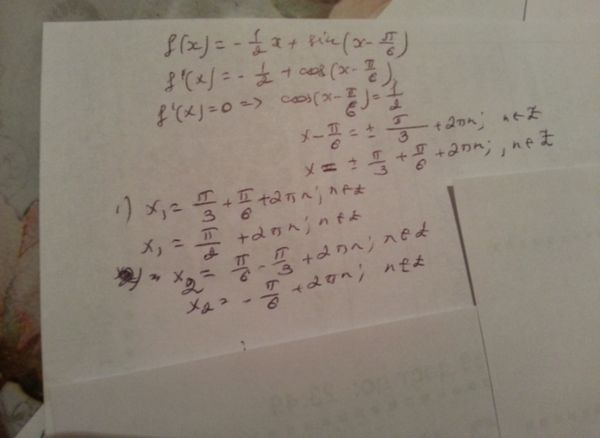 f(x) = -1/2 x + sin(x - π/6)
f'(x) = -1/2 + cos(x - π/6)
f'(x) = 0 => cos(x - π/6) = 1/2
x - π/6 = ± π/3 + 2πn; n∈Z
x = ± π/3 + π/6 + 2πn; , n∈Z
1) x₁ = π/3 + π/6 + 2πn; n∈Z
x₁ = π/2 + 2πn; n∈Z
2) x₂ = π/6 - π/3 + 2πn; n∈Z
x₂ = -π/6 + 2πn; n∈Z